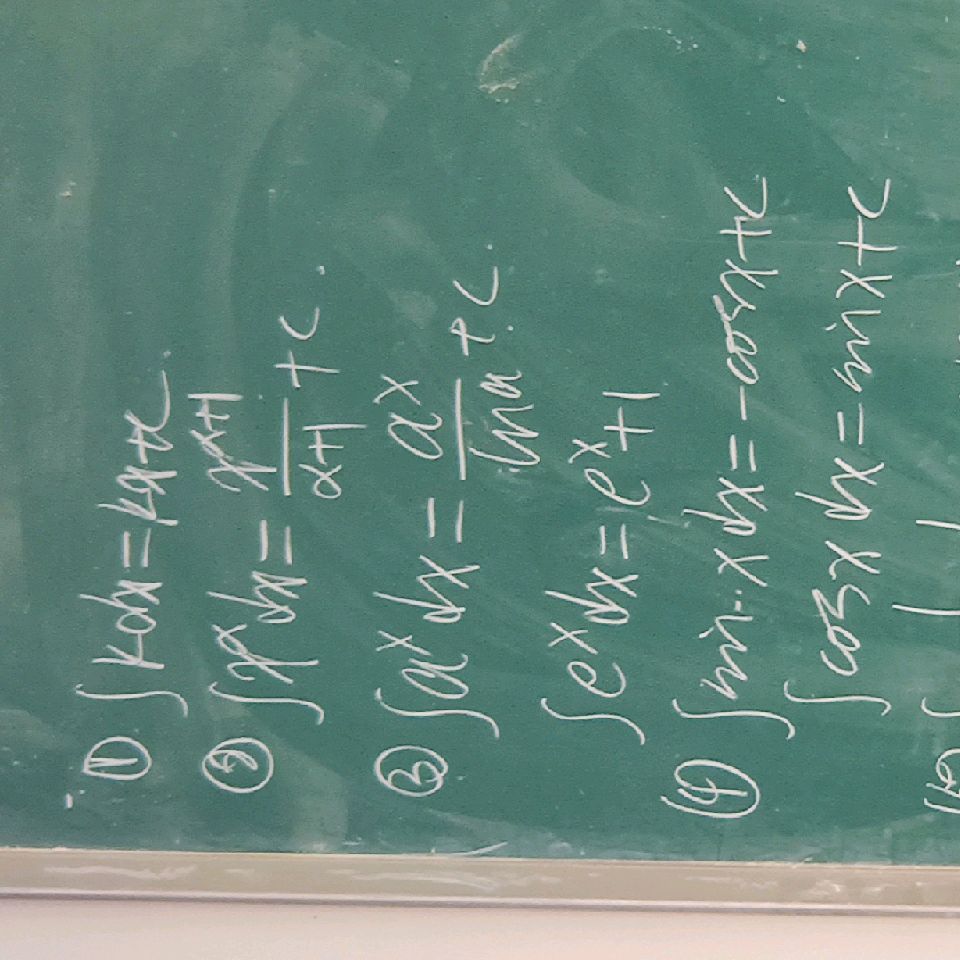 ① ∫kdx=kx+c.
② ∫x^α dx = x^(α+1)/(α+1) + c.
③ ∫a^x dx = a^x/ln a + c.
∫e^x dx = e^x+1
④ ∫sin x dx = -cosx+c
∫cosx dx = sinx+c